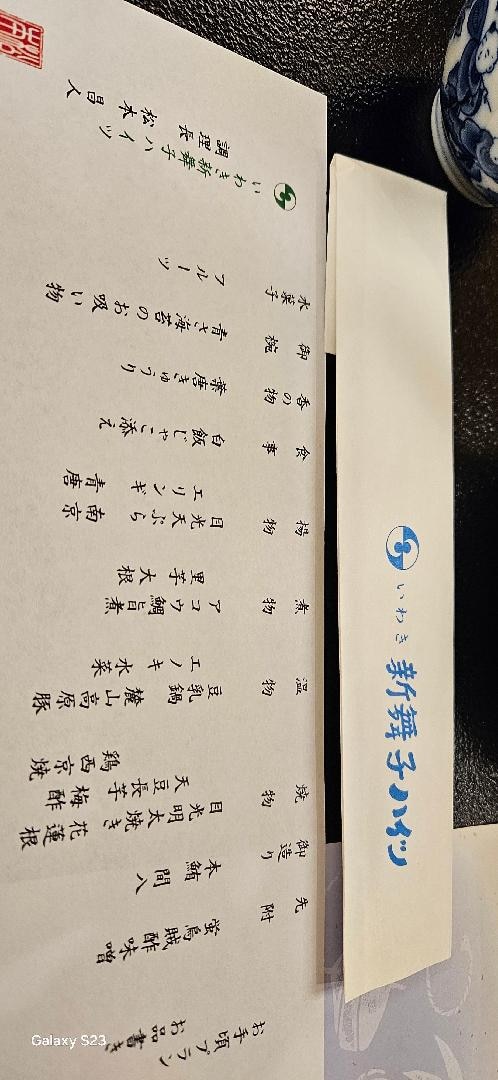 お手頃プラン
お品書き
先附
蛍烏賊酢味噌
御造り
本鮪 間八
焼物
目光明太焼き 花蓮根
天豆 長芋梅酢
鶏西京焼
温物
豆乳鍋 麓山高原豚
エノキ 水菜
煮物
アコウ鯛旨煮
里芋 大根
揚物
目光天ぷら 南京
エリンギ 青唐
食事
白飯 じゃこ添え
香の物
葉唐きゅうり
御椀
青さ海苔のお吸い物
水菓子
フルーツ
いわき新舞子ハイツ
調理長 松本昌人
いわき新舞子ハイツ
Galaxy S23